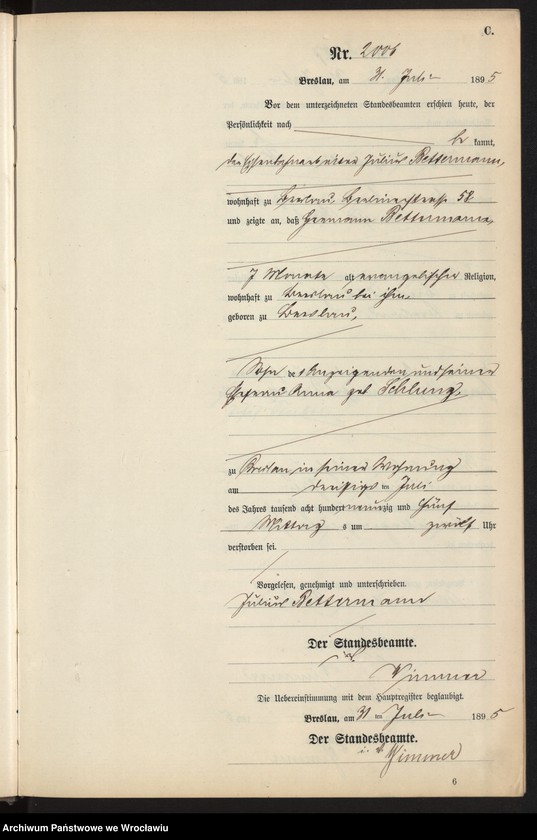 C.
Nr. 2006
Breslau, am 31. Juli 1895
Vor dem unterzeichneten Standesbeamten erschien heute, der
Persönlichkeit nach
be kannt,
der Eisenbahnarbeiter Julius Bettermann,
wohnhaft zu Breslau Berlinerstrasse 58
und zeigte an, daß Hermann Bettermann,
7 Monate alt, evangelischer Religion,
wohnhaft zu Breslau bei ihm,
geboren zu Breslau,
Sohn des Anzeigenden und seiner
Ehefrau Anna geb Schlung,
zu Breslau, in seiner Wohnung
am dreißigs ten Juli
des Jahres tausend acht hundert neunzig und fünf
Mittag s um zwölf Uhr
verstorben sei.
Vorgelesen, genehmigt und unterschrieben.
Julius Bettermann
Der Standesbeamte.
Wimmer
Die Uebereinstimmung mit dem Hauptregister beglaubigt.
Breslau, am 31 ten Juli 1895
Der Standesbeamte.
Wimmer
6
Archiwum Państwowe we Wrocławiu